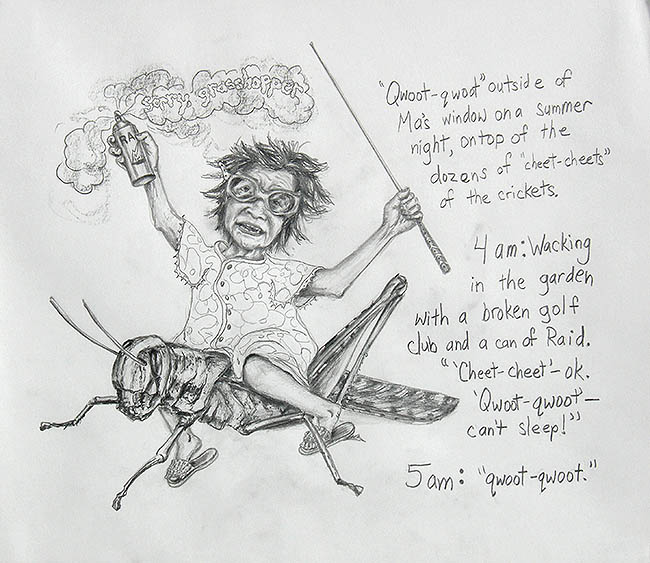 sorry, grasshopper
RA
"Qwoot-qwoot" outside of
Ma's window on a summer
night, on top of the
dozens of "cheet-cheets"
of the crickets.
4 am: Wacking
in the garden
with a broken golf
club and a can of Raid.
"'Cheet-cheet'-ok.
'Qwoot-qwoot'-
can't sleep!"
5am: "qwoot-qwoot."